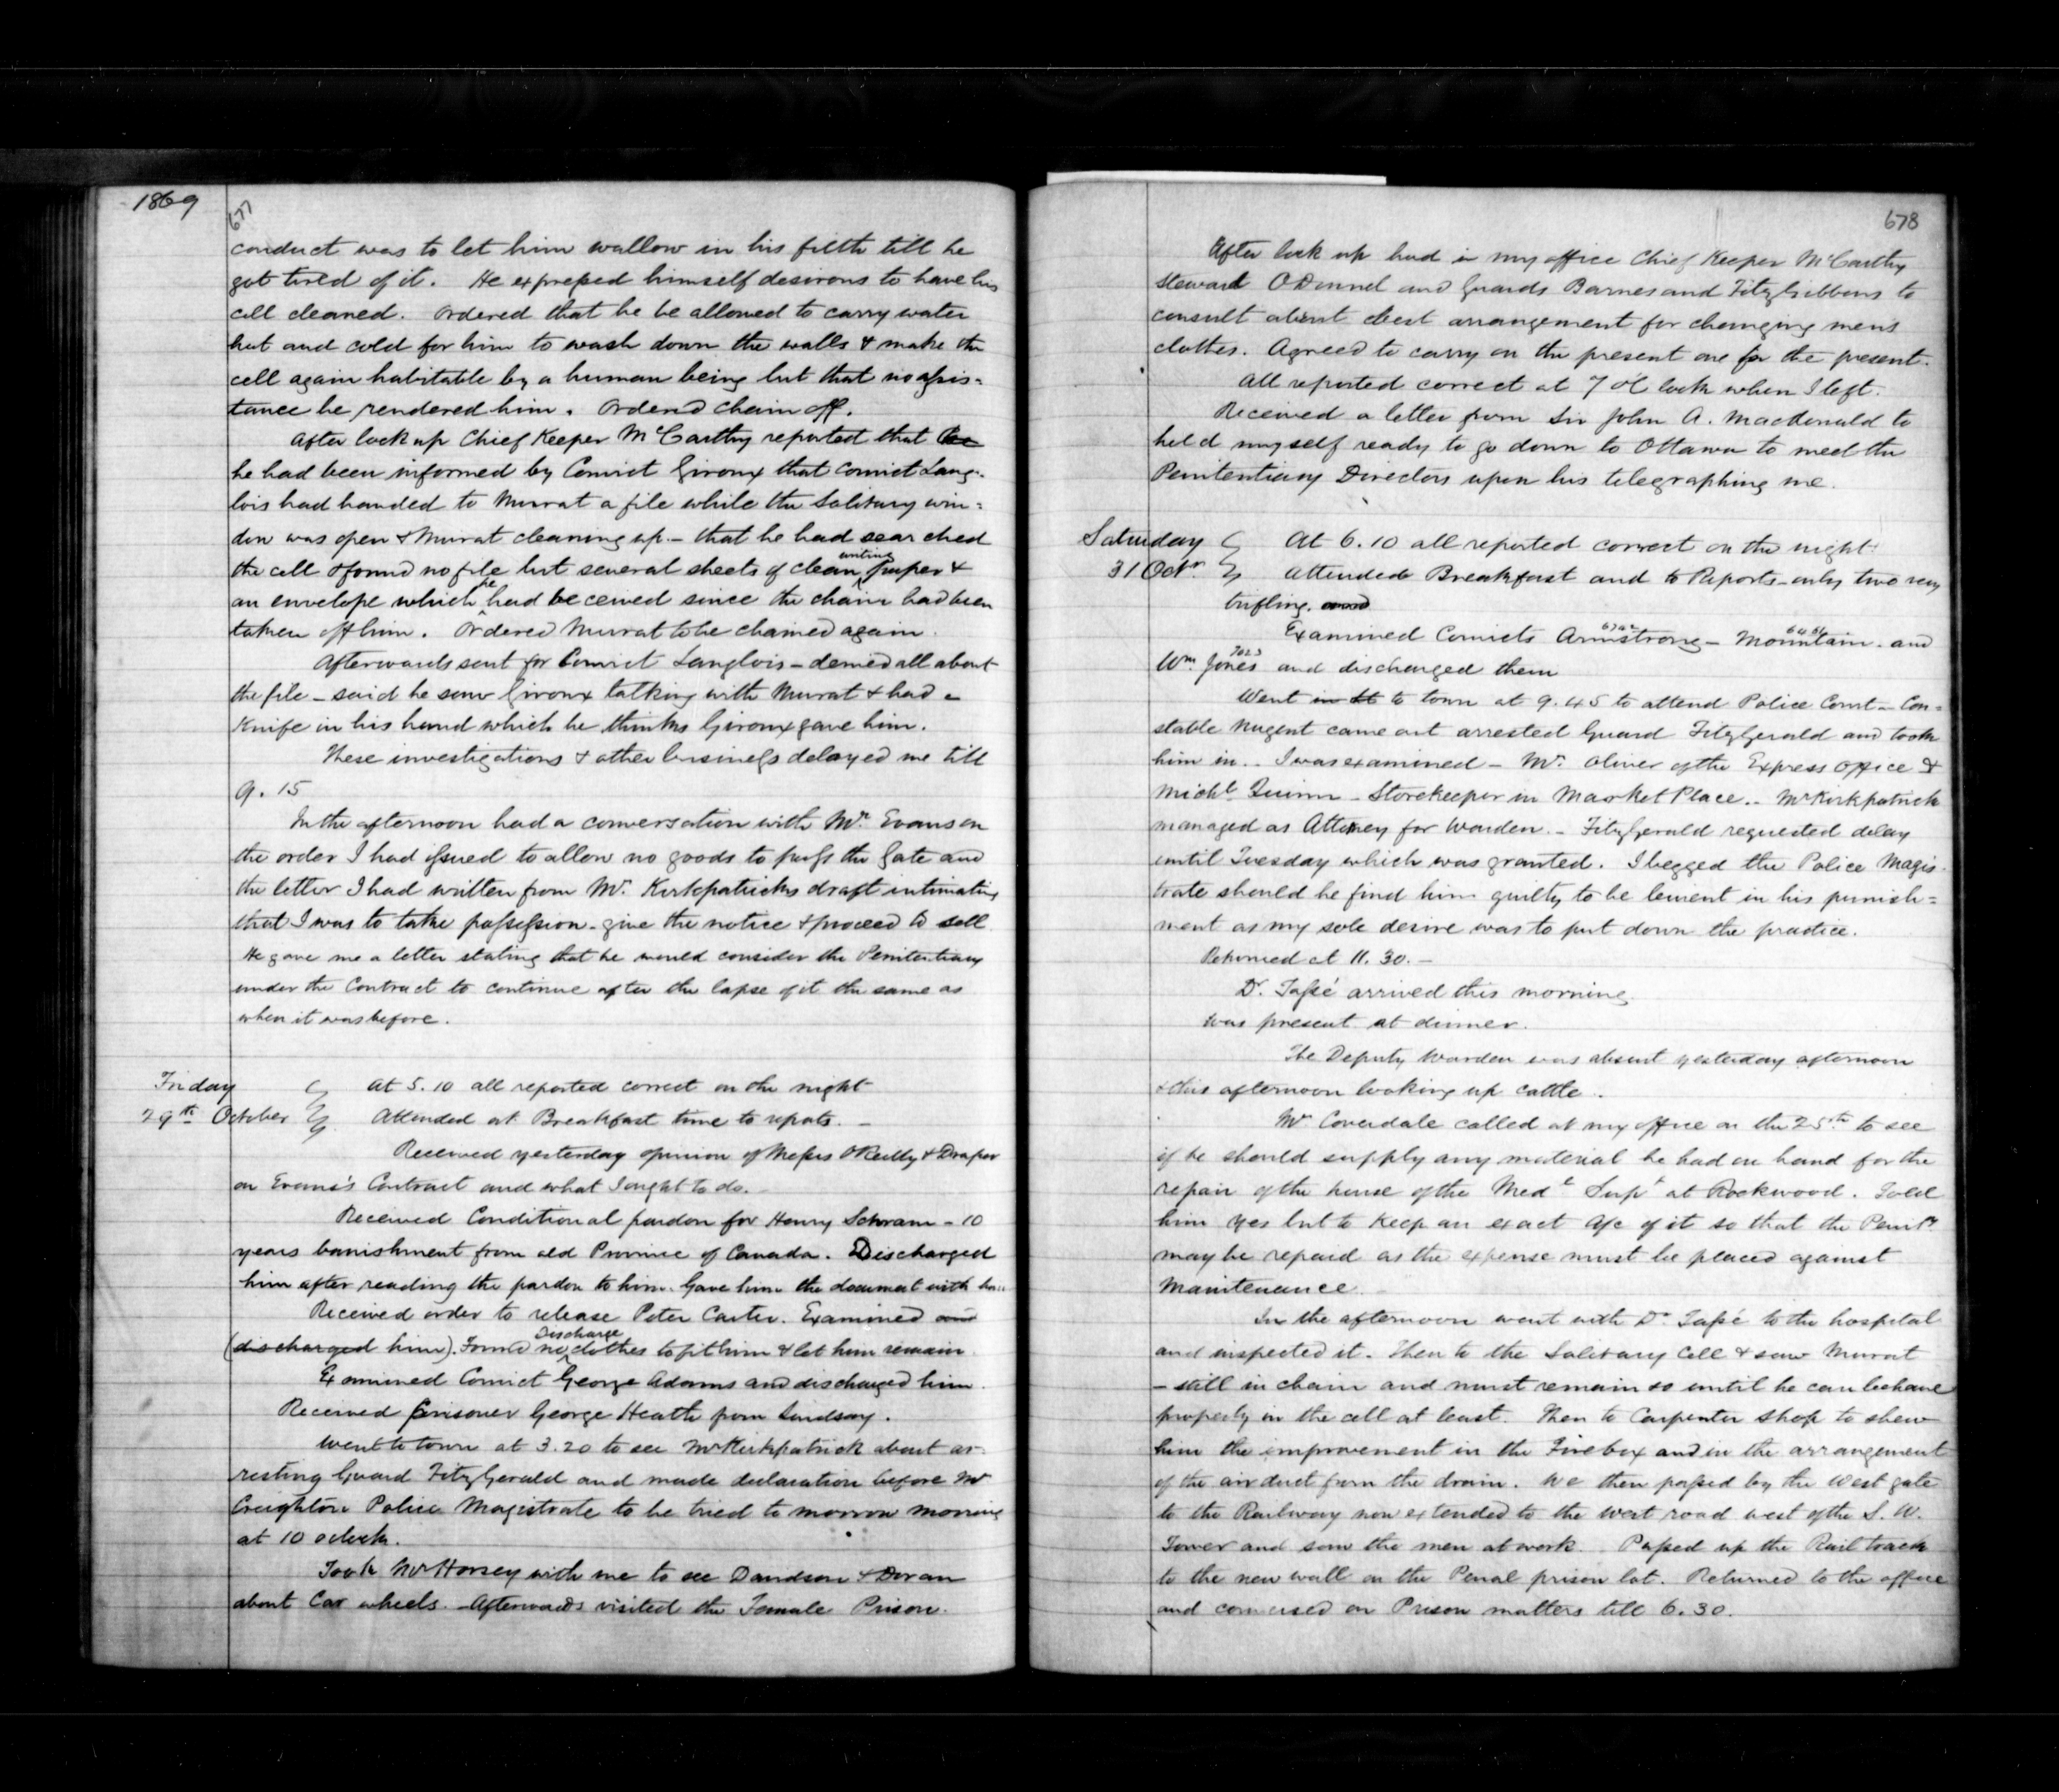 1869
677
conduct was to let him wallow in his filth till he
got tired of it. He expressed himself desirous to have his
cell cleaned. Ordered that he be allowed to carry water
hot and cold for him to wash down the walls & make the
cell again habitable by a human being but that no assis=
tance be rendered him. Ordered chain off.
After lock up Chief Keeper McCarthy reported that
he had been informed by Convict Giroux that Convict Lang=
lois had handed to Murrat a file while the Solitary win=
dow was open & Murat cleaning up - that he had searched
the cell & found no file but several sheets of clean writing paper &
an envelope which he had received since the chain had been
taken off him. Ordered Murat to be chained again.
Afterwards sent for Convict Langlois - denied all about
the file - said he saw Giroux talking with Murat & had a
Knife in his hand which he thinks Giroux gave him.
These investigations & other business delayed me till
9.15
In the afternoon had a conversation with Mr. Evans on
the order I had issued to allow no goods to pass the Gate and
the letter I had written from Mr. Kirkpatricks draft intimating
that I was to take possession - give the notice & proceed to sell
He gave me a letter stating that he would consider the Penitentiary
under the Contract to continue after the lapse of it the same as
when it was before.
Friday At 5.10 all reported correct on the night
29th October Attended at Breakfast time to reports. -
Received yesterday opinion of Messrs O'Reilly & Draper
on Evans's Contract and what I ought to do.
Received Conditional pardon for Henry Schram - 10
years banishment from old Province of Canada. Discharged
him after reading the pardon to him. Gave him the document with
Received order to release Peter Carter. Examined and
(discharged him). Found no Discharge clothes to fit him & let him remain
Examined Convict George Adams and discharged him.
Received prisoner George Heath from Lindsay.
Went to town at 3.20 to see Mr Kirkpatrick about ar=
resting Guard FitzGerald and made declaration before Mr
Creighton Police Magistrate to be tried to morrow morning
at 10 o'clock.
Took Mr Horsey with me to see Davidson & Doran
about Car wheels. - Afterwards visited the Female Prison.
678
After lock up had in my office Chief Keeper McCarthy
Steward O'Donnel and Guards Barnes and FitzGibbons to
consult about best arrangement for changing mens
clothes. Agreed to carry on the present one for the present.
All reported correct at 7 o'Clock when I left.
Received a letter from Sir John A. MacDonald to
hold myself ready to go down to Ottawa to meet the
Penitentiary Directors upon his telegraphing me.
Saturday At 6.10 all reported correct on the night
31 Octr. Attended Breakfast and to Reports - only two very
trifling.
Examined Convicts Armstrong - Mountain - and
Wm. Jones 7023 and discharged them
Went in to town at 9.45 to attend Police Court - Con=
stable Nugent came out arrested Guard FitzGerald and took
him in. - I was examined - Mr. Oliver of the Express Office &
Michl Quinn - Storekeeper in Market Place. - Mr Kirkpatrick
managed as Attorney for Warden. - FitzGerald requested delay
until Tuesday which was granted. I begged the Police Magis
trate should he find him guilty to be lenient in his punish=
ment as my sole desire was to put down the practice.
Returned at 11.30. -
Dr. Tassé arrived this morning
was present at dinner.
The Deputy Warden was absent yesterday afternoon
& this afternoon looking up cattle.
Mr Coverdale called at my office on the 25th to see
if he should supply any material he had on hand for the
repair of the house of the Medl Supt at Rockwood. Told
him yes but to keep an exact a/c of it so that the Penity
may be repaid as the expense must be placed against
Maintenance.
In the afternoon went with Dr. Tassé to the hospital
and inspected it. Then to the Solitary Cell & saw Murrat
- still in chain and must remain so until he can behave
properly in the cell at least. Then to Carpenter Shop to shew
him the improvement in the Firebox and in the arrangement
of the air duct from the drain. We then passed by the West gate
to the Railway now extended to the West road west of the S. W.
Tower and saw the men at work. Passed up the Rail track
to the new wall on the Penal prison lot. Returned to the office
and conversed on Prison matters till 6.30.